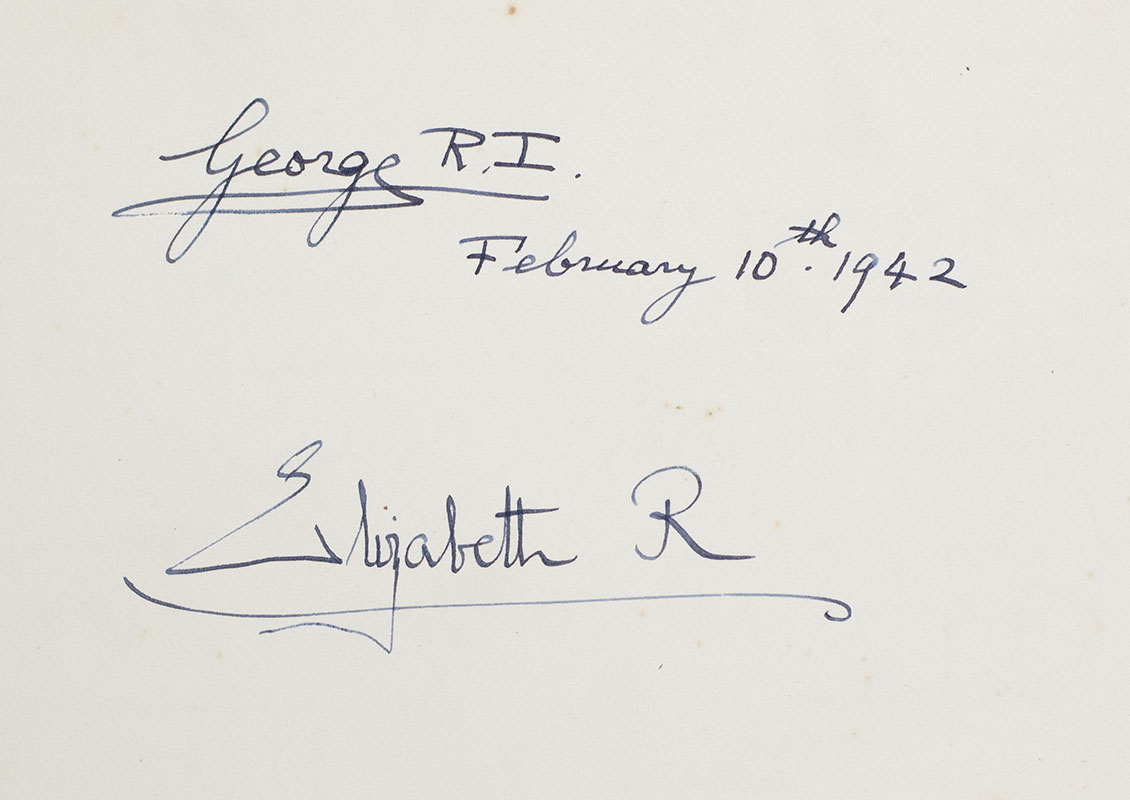 George R.I.
February 10th. 1942
Elizabeth R